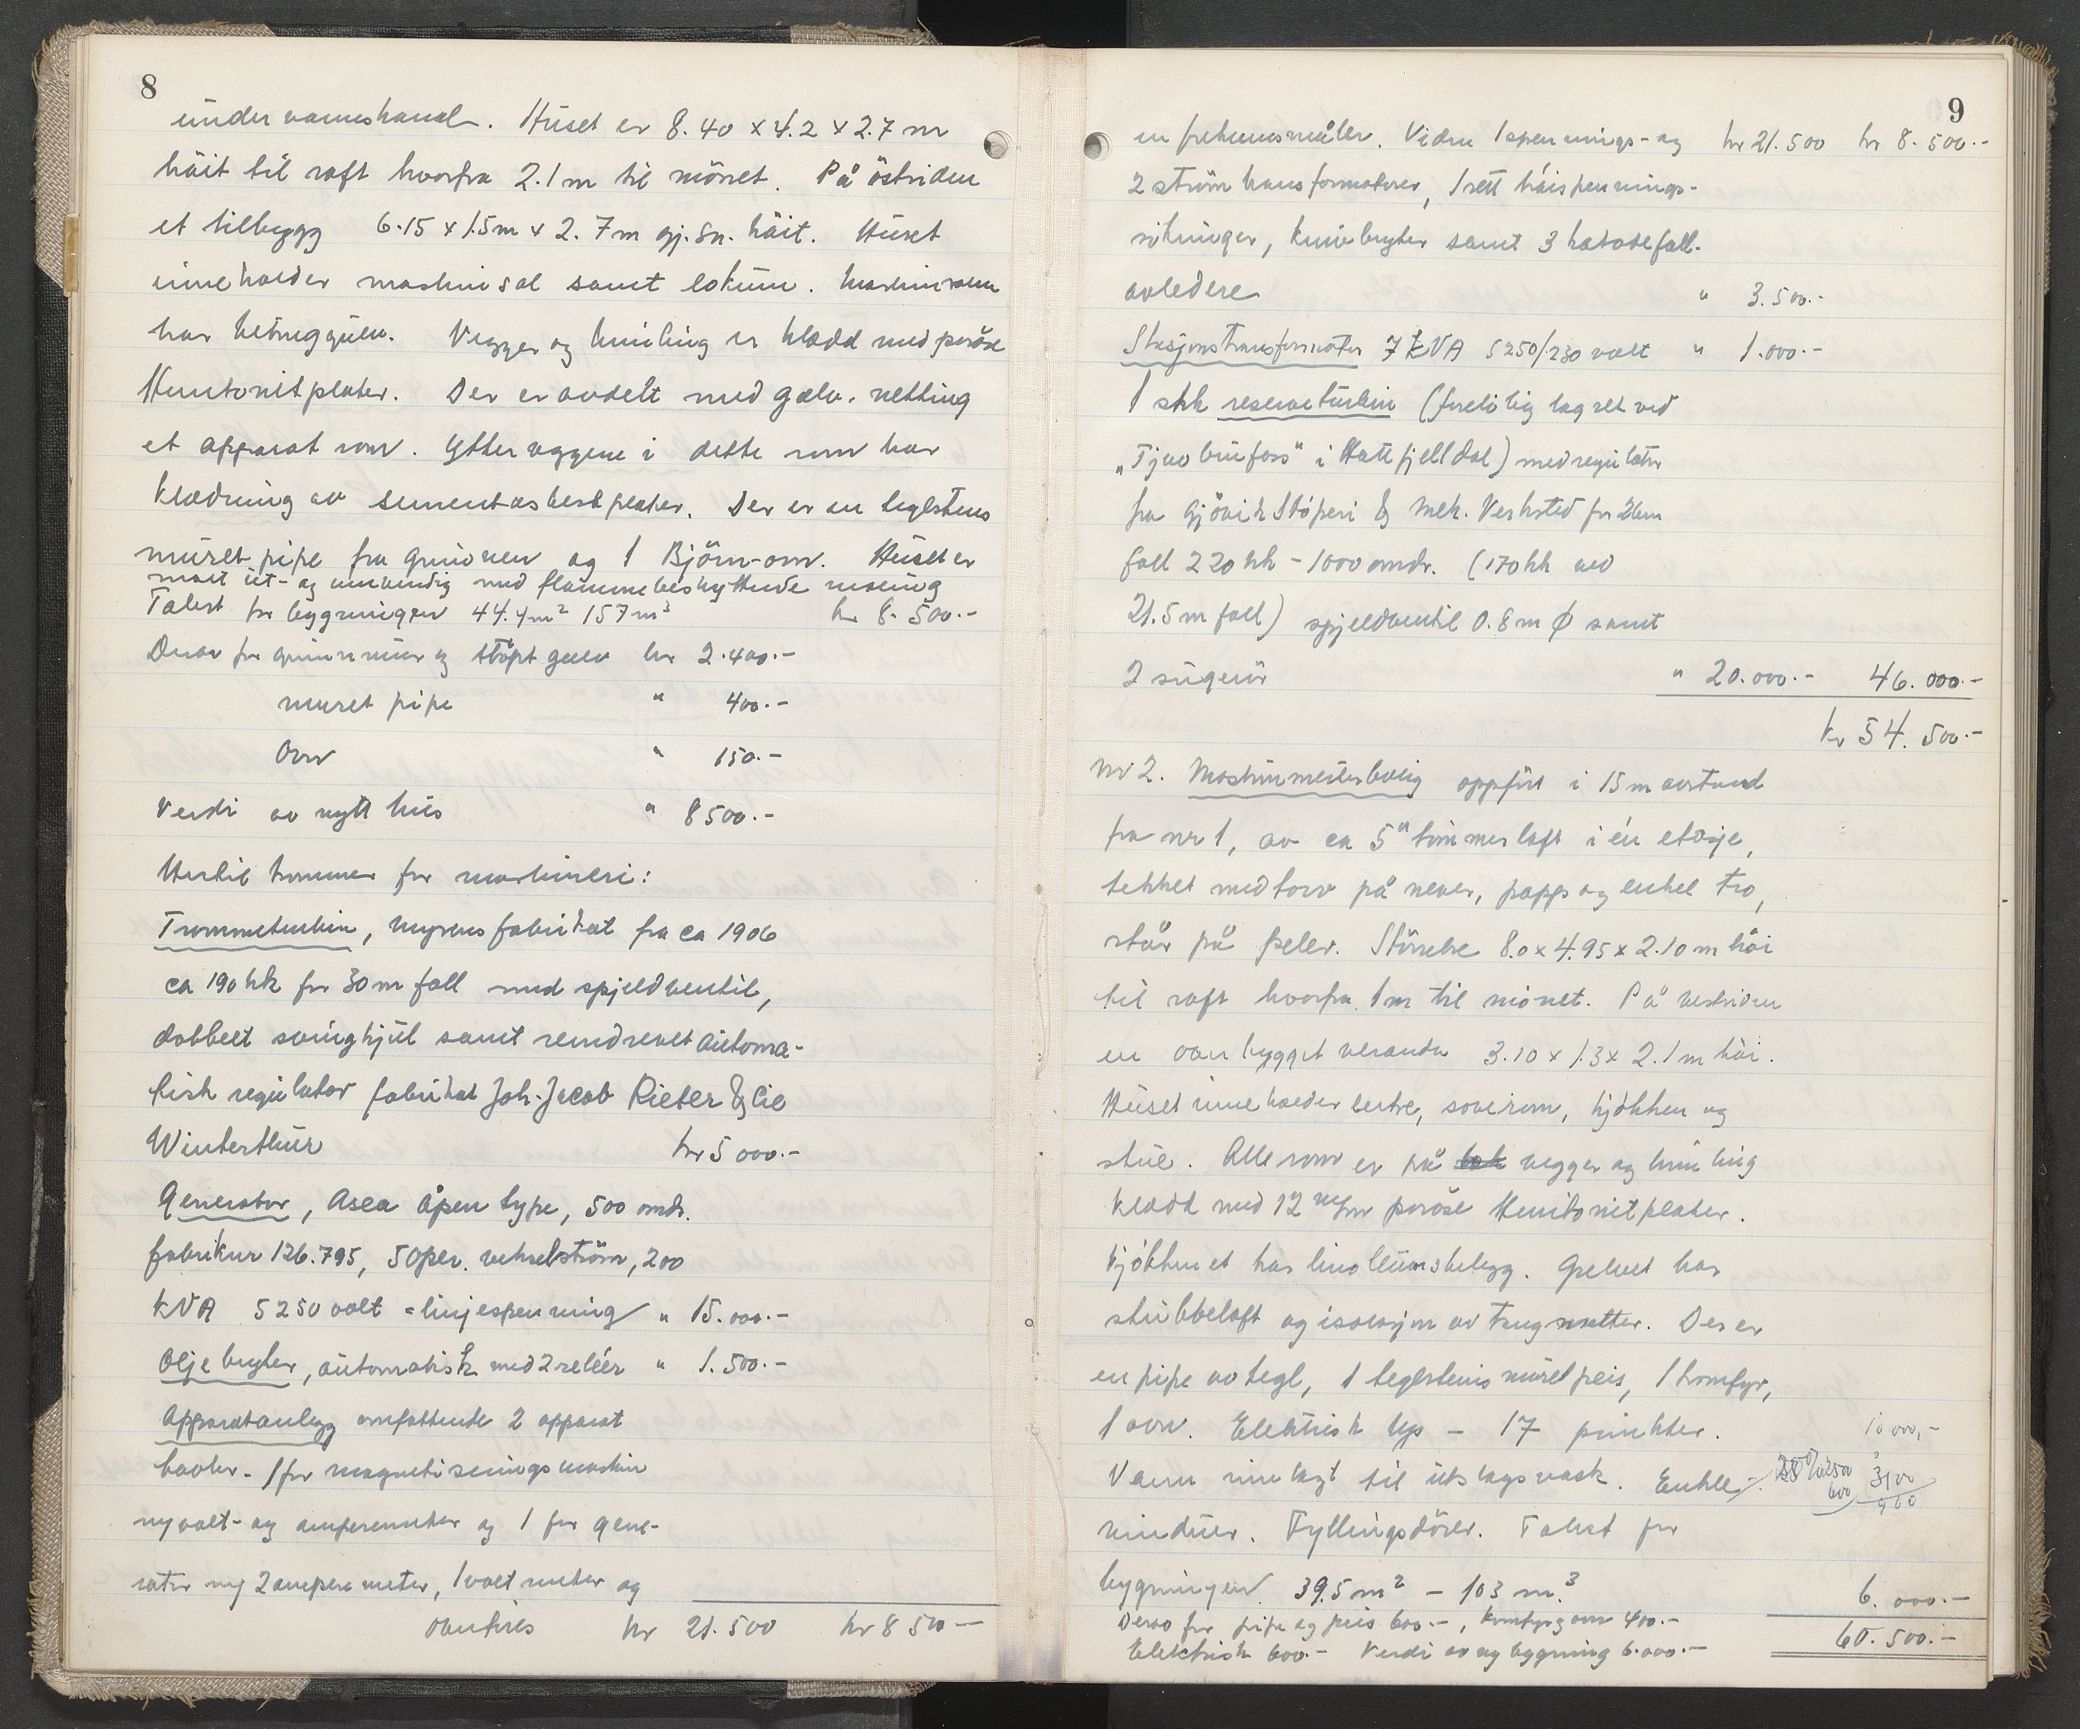 8
undervannskanal. Huset er 8.40 x 4.2 x 2.7 m
höit til raft hvorfra 2.1 m til mönet. På östsiden
et tilbygg 6.15 x 1.5 m x 2.7 m gj.sn. höit. Huset
inneholder maskinsal samt lokum. Maskinrom
har betonggulv. Vegger og himling er klædd med poröse
Huntonitplater. Der er avdelt med galv. netting
et apparat rom. Ytterveggene i dette rom har
klædning av sementasbestplater. Der er en teglstens
muret pipe fra grunnen og 1 Björn-ovn. Huset er
malt ut- og innvendig med flammebeskyttende maling
Takst for bygningen 44.4 m² 157 m³ kr 8.500.-
Derav for grunnmur og støpt gulv kr 2.400.-
muret pipe " 400.-
Ovn " 150.-
Verdi av nytt hus " 8500.-
Hertil kommer for maskineri:
Trommeturbin, Myrens fabrikat fra ca 1906
ca 190 hk for 30 m fall med spjeldventil,
dobbelt svinghjul samt remdrevet automa-
tisk regulator fabrikat Joh. Jacob Rieter & Cie
Winterthur kr 5000.-
Generator, Asea åpen type, 500 omdr.
fabriknr 126.795, 50 per. vekselström, 200
kVA 5250 volt = linjespenning " 15.000.-
Oljebryter, automatisk med 2 reléer " 1.500.-
Apparatanlegg omfattende 2 apparat
tavler - 1 for magnetiseringsmaskin
m/volt- og amperemeter og 1 for gene-
rator m/ 2 amperemeter, 1 voltmeter og
overføres kr 21.500 kr 8500-
9
en frekvensmåler. Videre 1 spennings- og kr 21.500 kr 8.500.-
2 strömtransformatorer, 1 sett höispennings-
sikringer, knivbryter samt 3 katodefall-
avledere " 3.500.-
Stasjonstransformator 7 kVA 5250/230 volt " 1.000.-
1 stk reserveturbin (foreløbig lagret ved
"Tjuvbufoss" i Hattfjelldal) med regulator
fra Gjövik Støperi & Mek. Verksted for 26 m
fall 220 hk - 1000 omdr. (170 hk ved
21.5 m fall) spjeldventil 0.8 m Ø samt
2 sugerör " 20.000.- 46.000.-
kr 54.500.-
nr 2. Maskinmesterbolig oppfört i 15 m avstand
fra nr 1, av ca 5" tømmer laft i én etasje,
tekket med torv på never, papp og enkel tro,
står på peler. Störrelse 8.0 x 4.95 x 2.10 m höi
til raft hvorfra 1 m til mönet. På vestsiden
en overbygget veranda 3.10 x 1.3 x 2.1 m höi.
Huset inneholder entre, soverom, kjökken og
stue. Alle rom er på vegger og himling
klædd med 12 m/m poröse Huntonitplater.
Kjökkenet har linoleumsbelegg. Gulvet har
stubbeloft og isolasjon av tangmatter. Der er
en pipe av tegl, 1 teglstens muret peis, 1 komfyr,
1 ovn. Elektrisk lys - 17 punkter. 10000,-
Vann innlagt til utslagsvask. Enkle
vinduer. Fyllingsdörer. Takst for
bygningen 39.5 m² - 103 m³ 6.000.-
Derav for pipe og peis 600.-, komfyr og ovn 400.- 60.500.-
Elektrisk 600.- Verdi av ny bygning 6.000.-